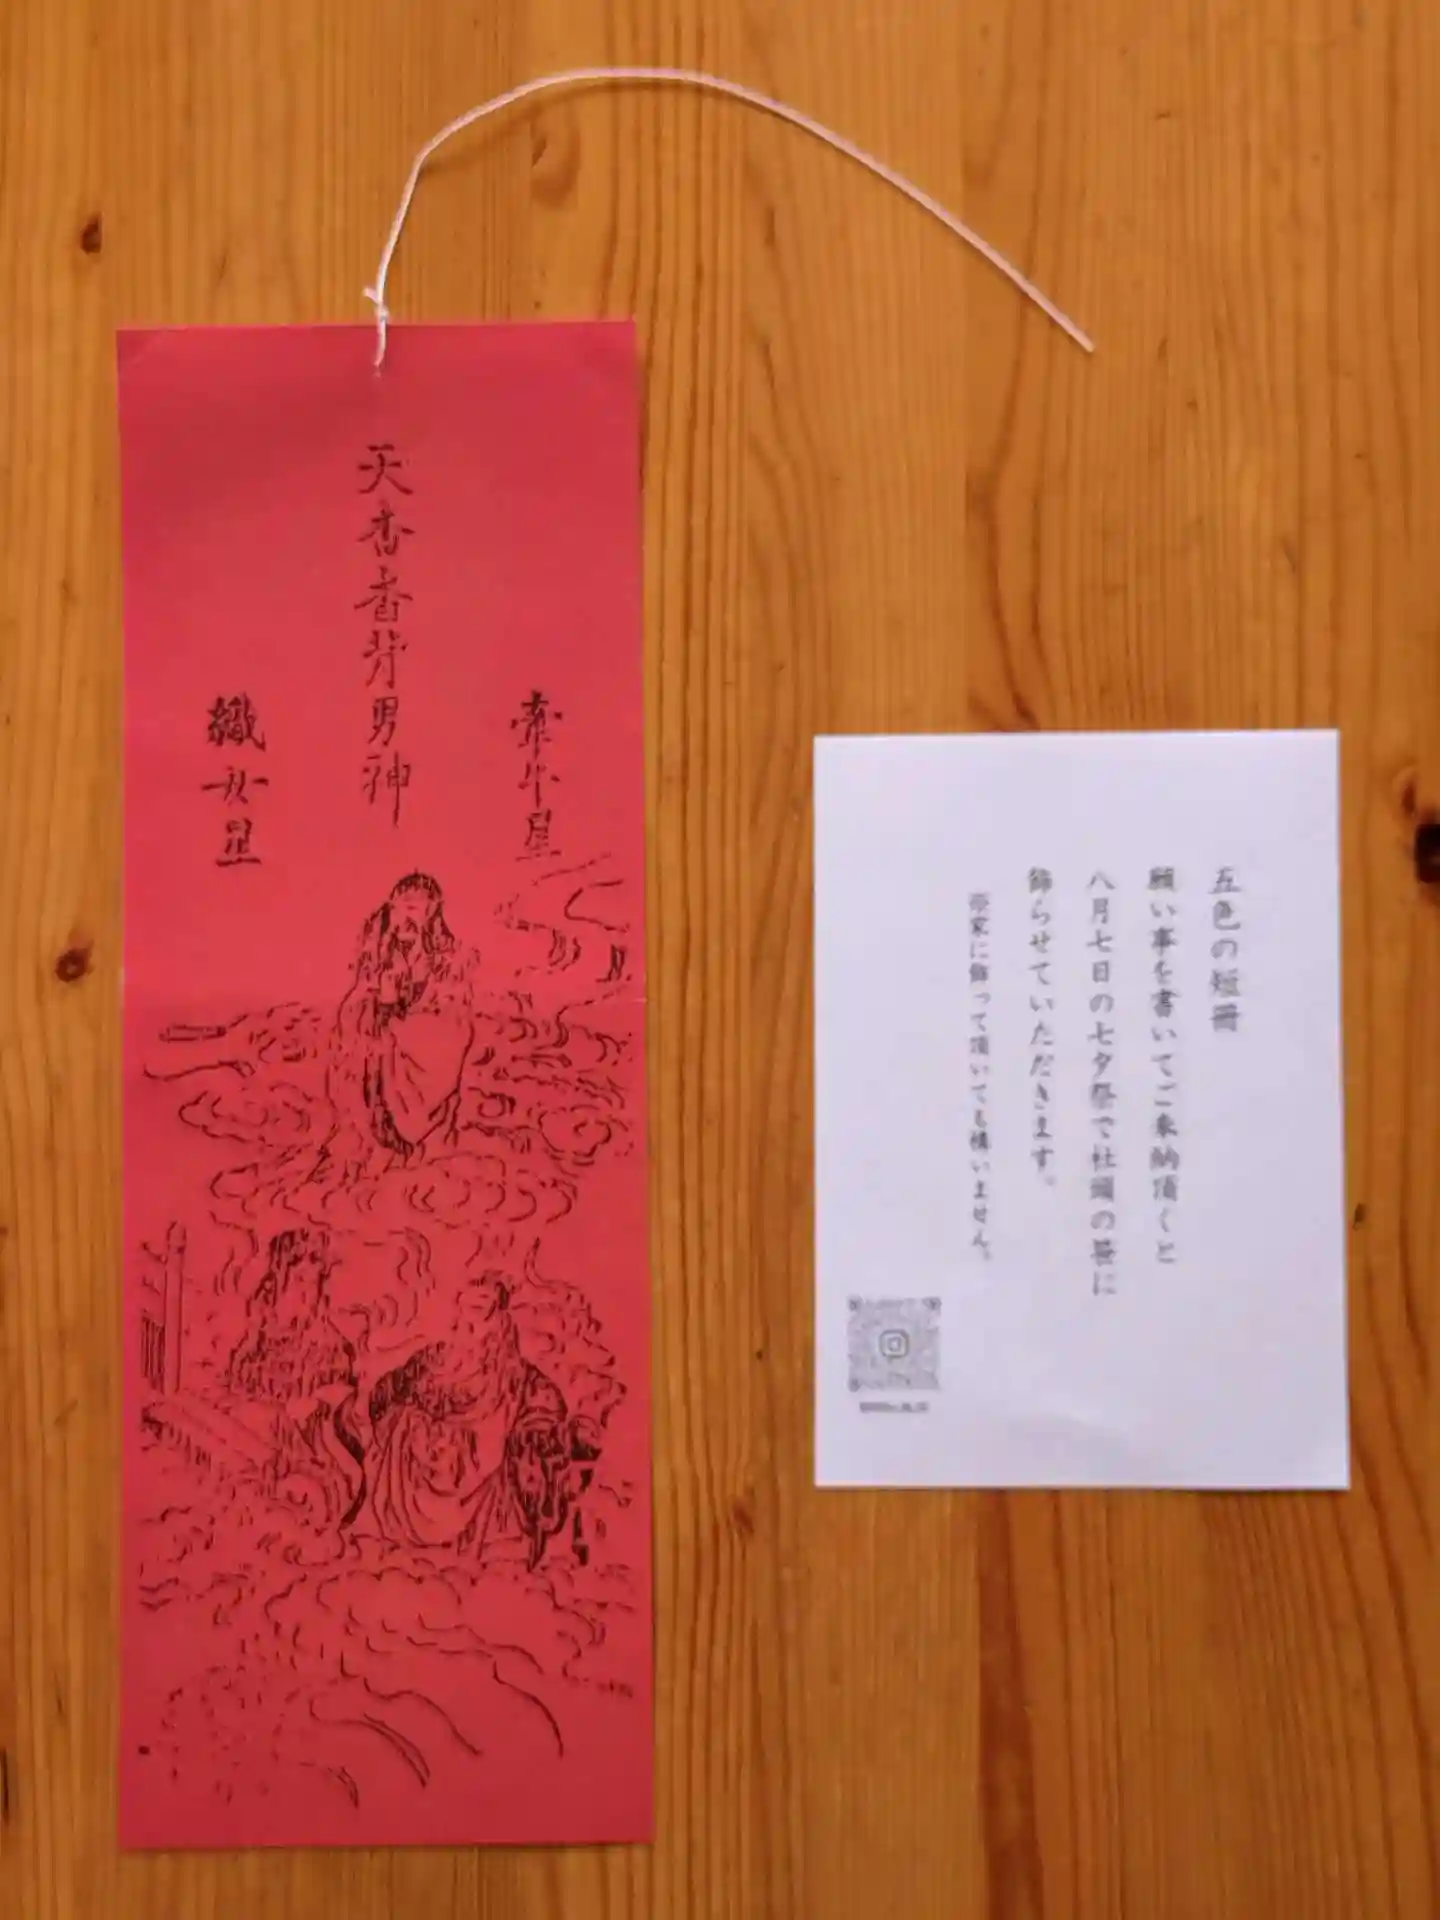 牽牛星
天香香背男神
織女星
五色の短冊
願い事を書いてご奉納頂くと
八月七日の七夕祭で社頭の笹に
飾らせていただきます。
※家に飾って頂いても構いません。